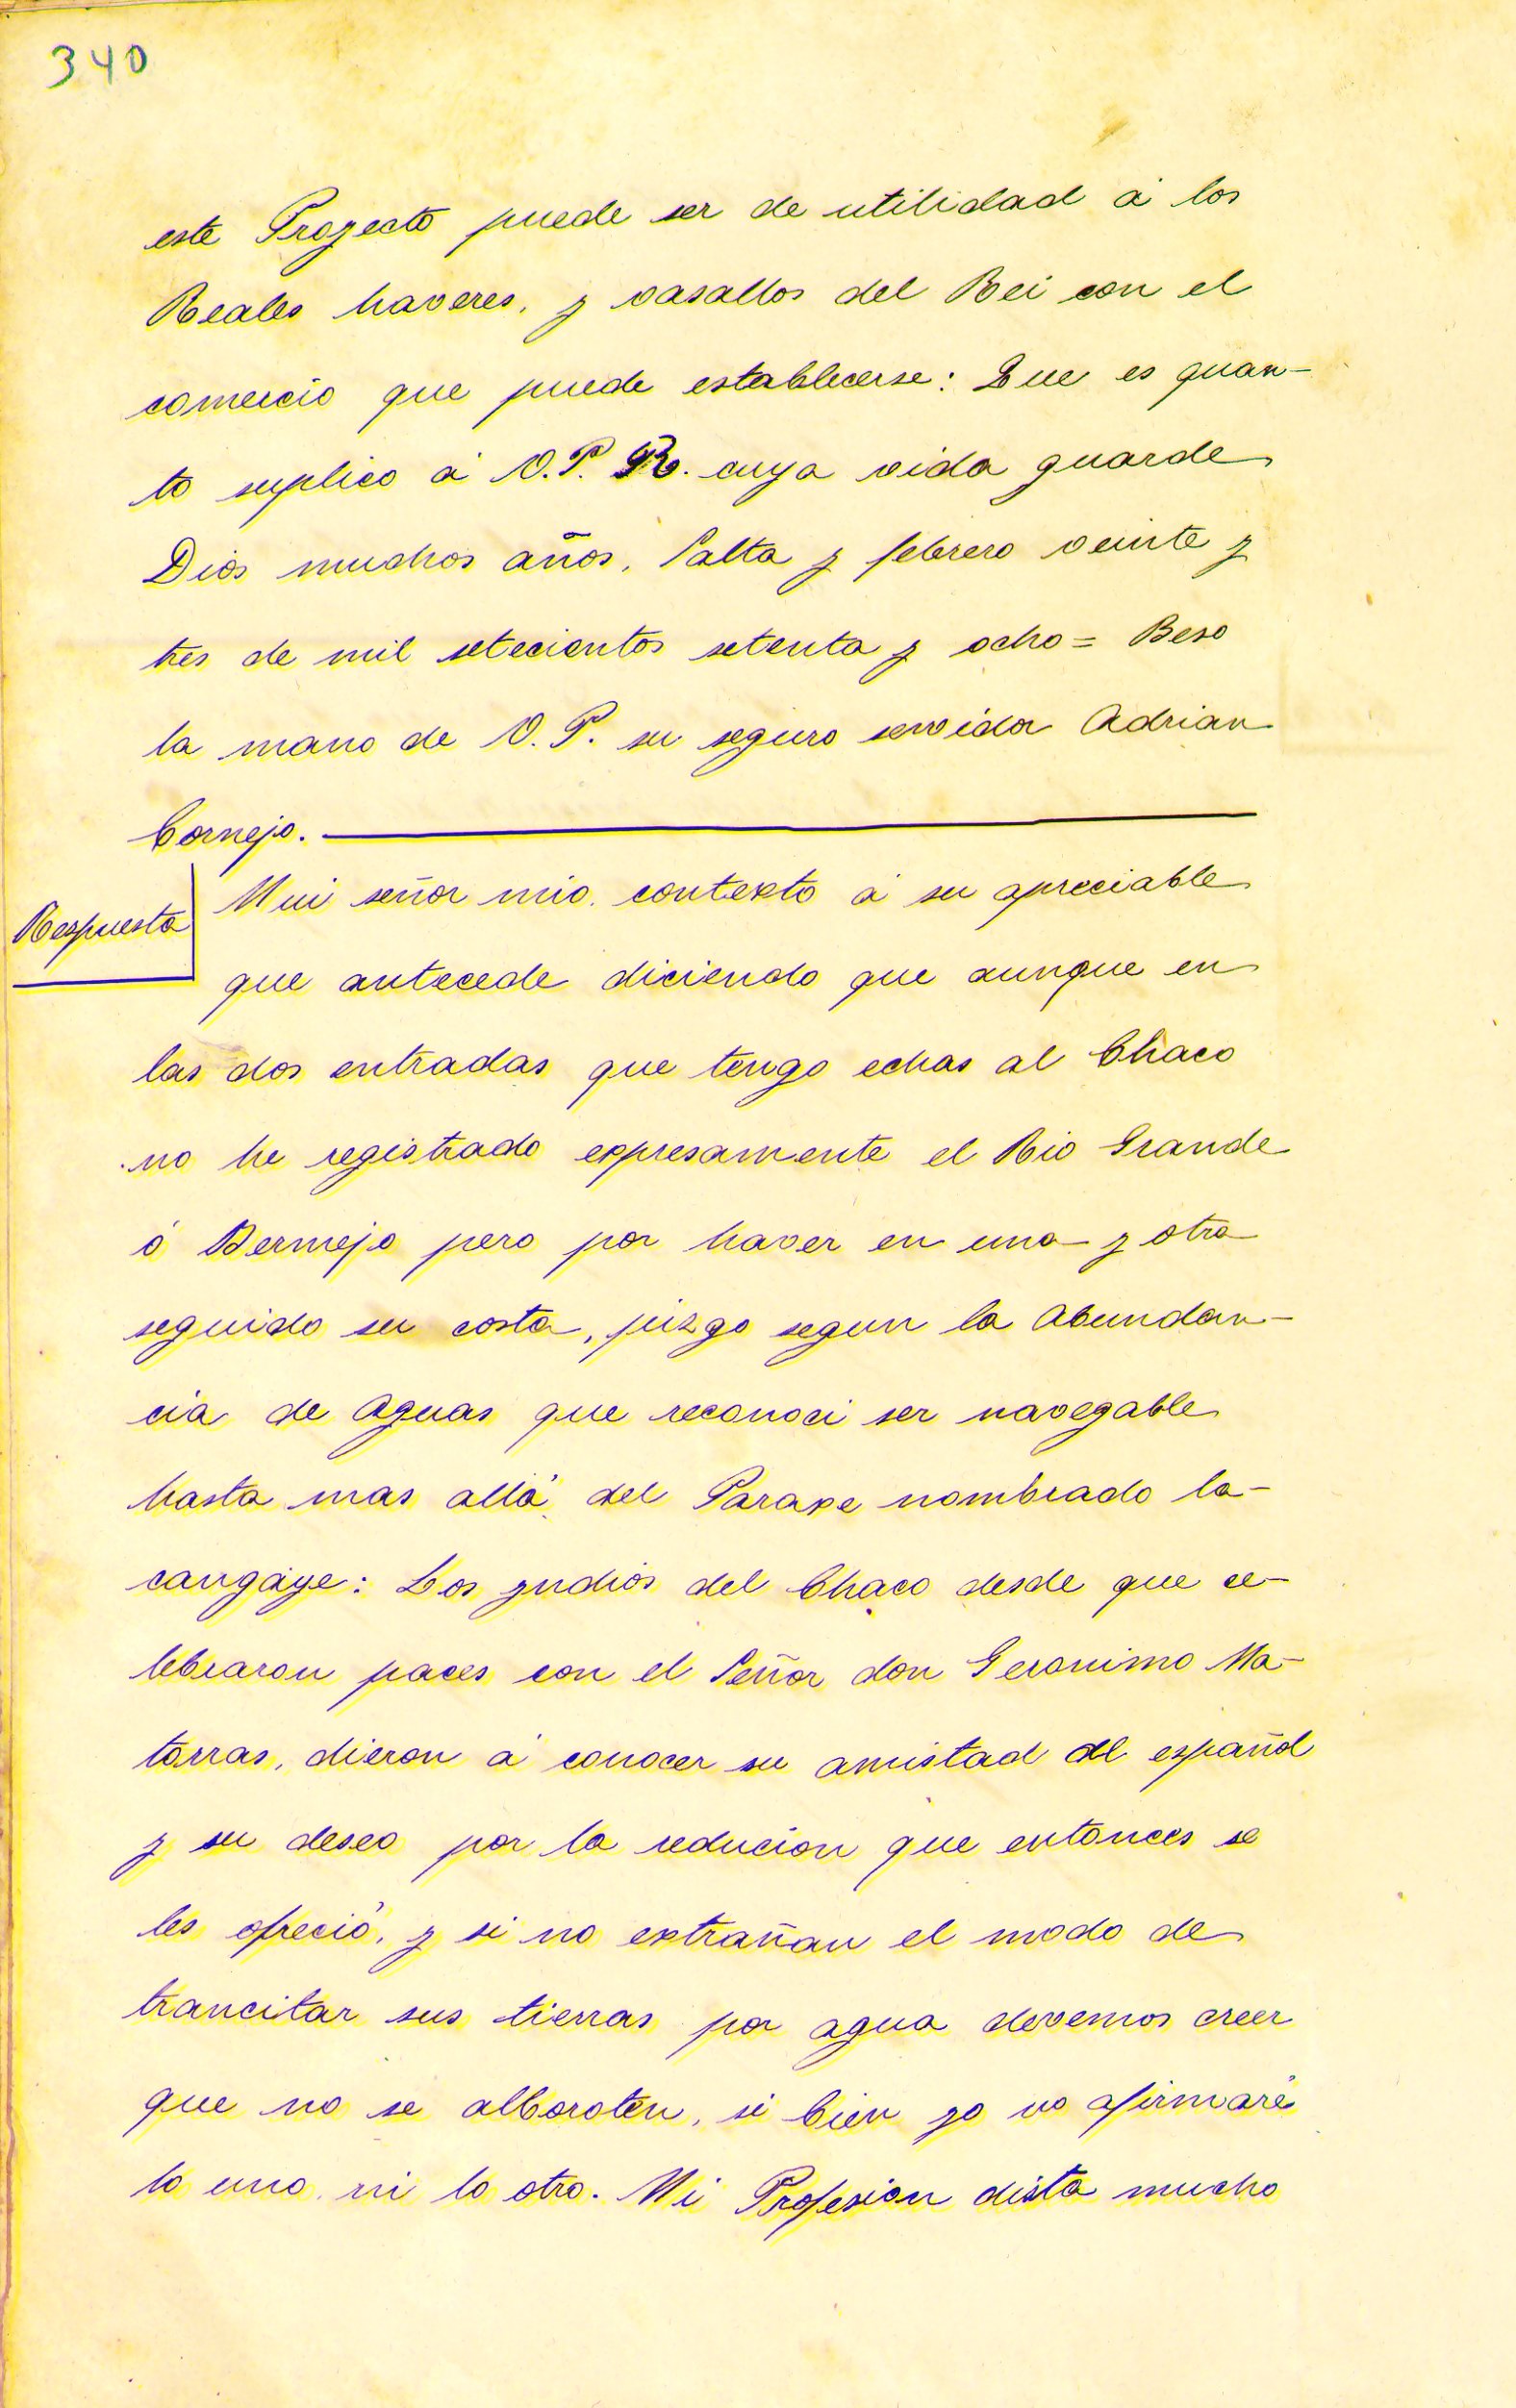 340
este Proyecto puede ser de utilidad á los
Reales haveres, y vasallos del Rei con el
comercio que puede establecerse: Que es quan-
to suplico á V. P. R. cuya vida guarde
Dios muchos años, Salta y febrero veinte y
tres de mil setecientos setenta y ocho = Beso
la mano de V. P. su seguro servidor Adrian
Cornejo.
Respuesta
Mui señor mio. contexto á su apreciable
que antecede diciendo que aunque en
las dos entradas que tengo echas al Chaco
no he registrado expresamente el Rio Grande
ó Bermejo pero por haver en una y otra
seguido su costa, juzgo segun la abundan-
cia de aguas que reconoci ser navegable
hasta mas allá del Paraxe nombrado la-
cangaye: Los yndios del Chaco desde que ce-
lebraron paces con el Señor don Geronimo Ma-
torras, dieron á conocer su amistad al español
y su deseo por la reducion que entonces se
les ofreció, y si no extrañan el modo de
trancitar sus tierras por agua devemos creer
que no se alboroten, si bien yo no afirmaré
lo uno ni lo otro. Mi Profesion dista mucho